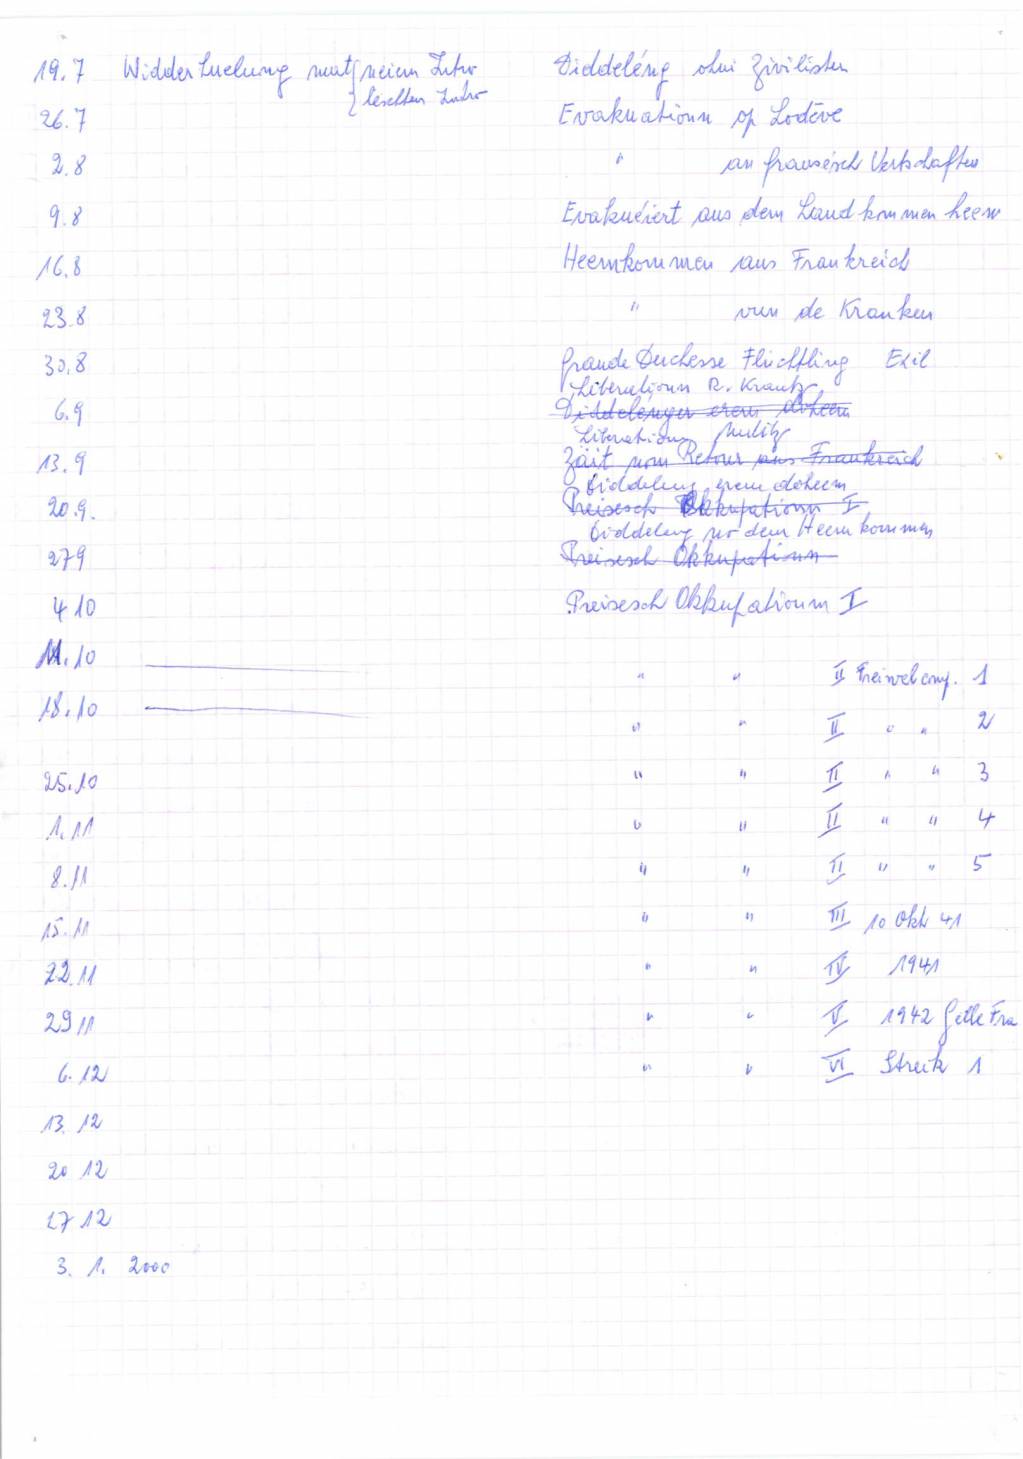 19.7 Widderhuelung mat { neiem Intro Diddeléng ohni Zivilisten
{ leschten Intro
26.7 Evakuatioun op Lodève
2.8 " an franséisch Uertschaften
9.8 Evakuéiert aus dem Land kommen heem
16.8 Heemkommen aus Frankreich
23.8 " vun de Kranken
30.8 Grande Duchesse Flüchtling Exil
Liberatioun R. Krantz
6.9 Diddelenger erem doheem
Liberatioun
13.9 Zäit vum Retour aus Frankreich
Diddeleng erem doheem
20.9. Preisesch Okkupatioun I
Diddeleng no dem Heemkommen
279 Preisesch Okkupatioun
4 10 Preisesch Okkupatioun I
11.10 " " II 1
18.10 " " II " " 2
25.10 " " II " " 3
1.11 " " II " " 4
8.11 " " II " " 5
15.11 " " III 10 Okt 41
22.11 " " IV 1941
29 11 " " V 1942 Gelle Fra
6.12 " " VI Streik 1
13.12
20 12
27 12
3. 1. 2000